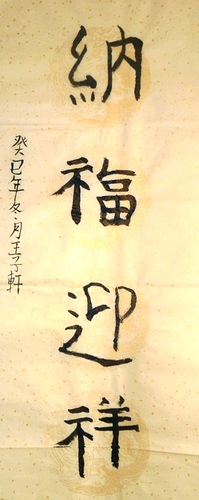 納福迎祥
癸巳年冬月王子軒